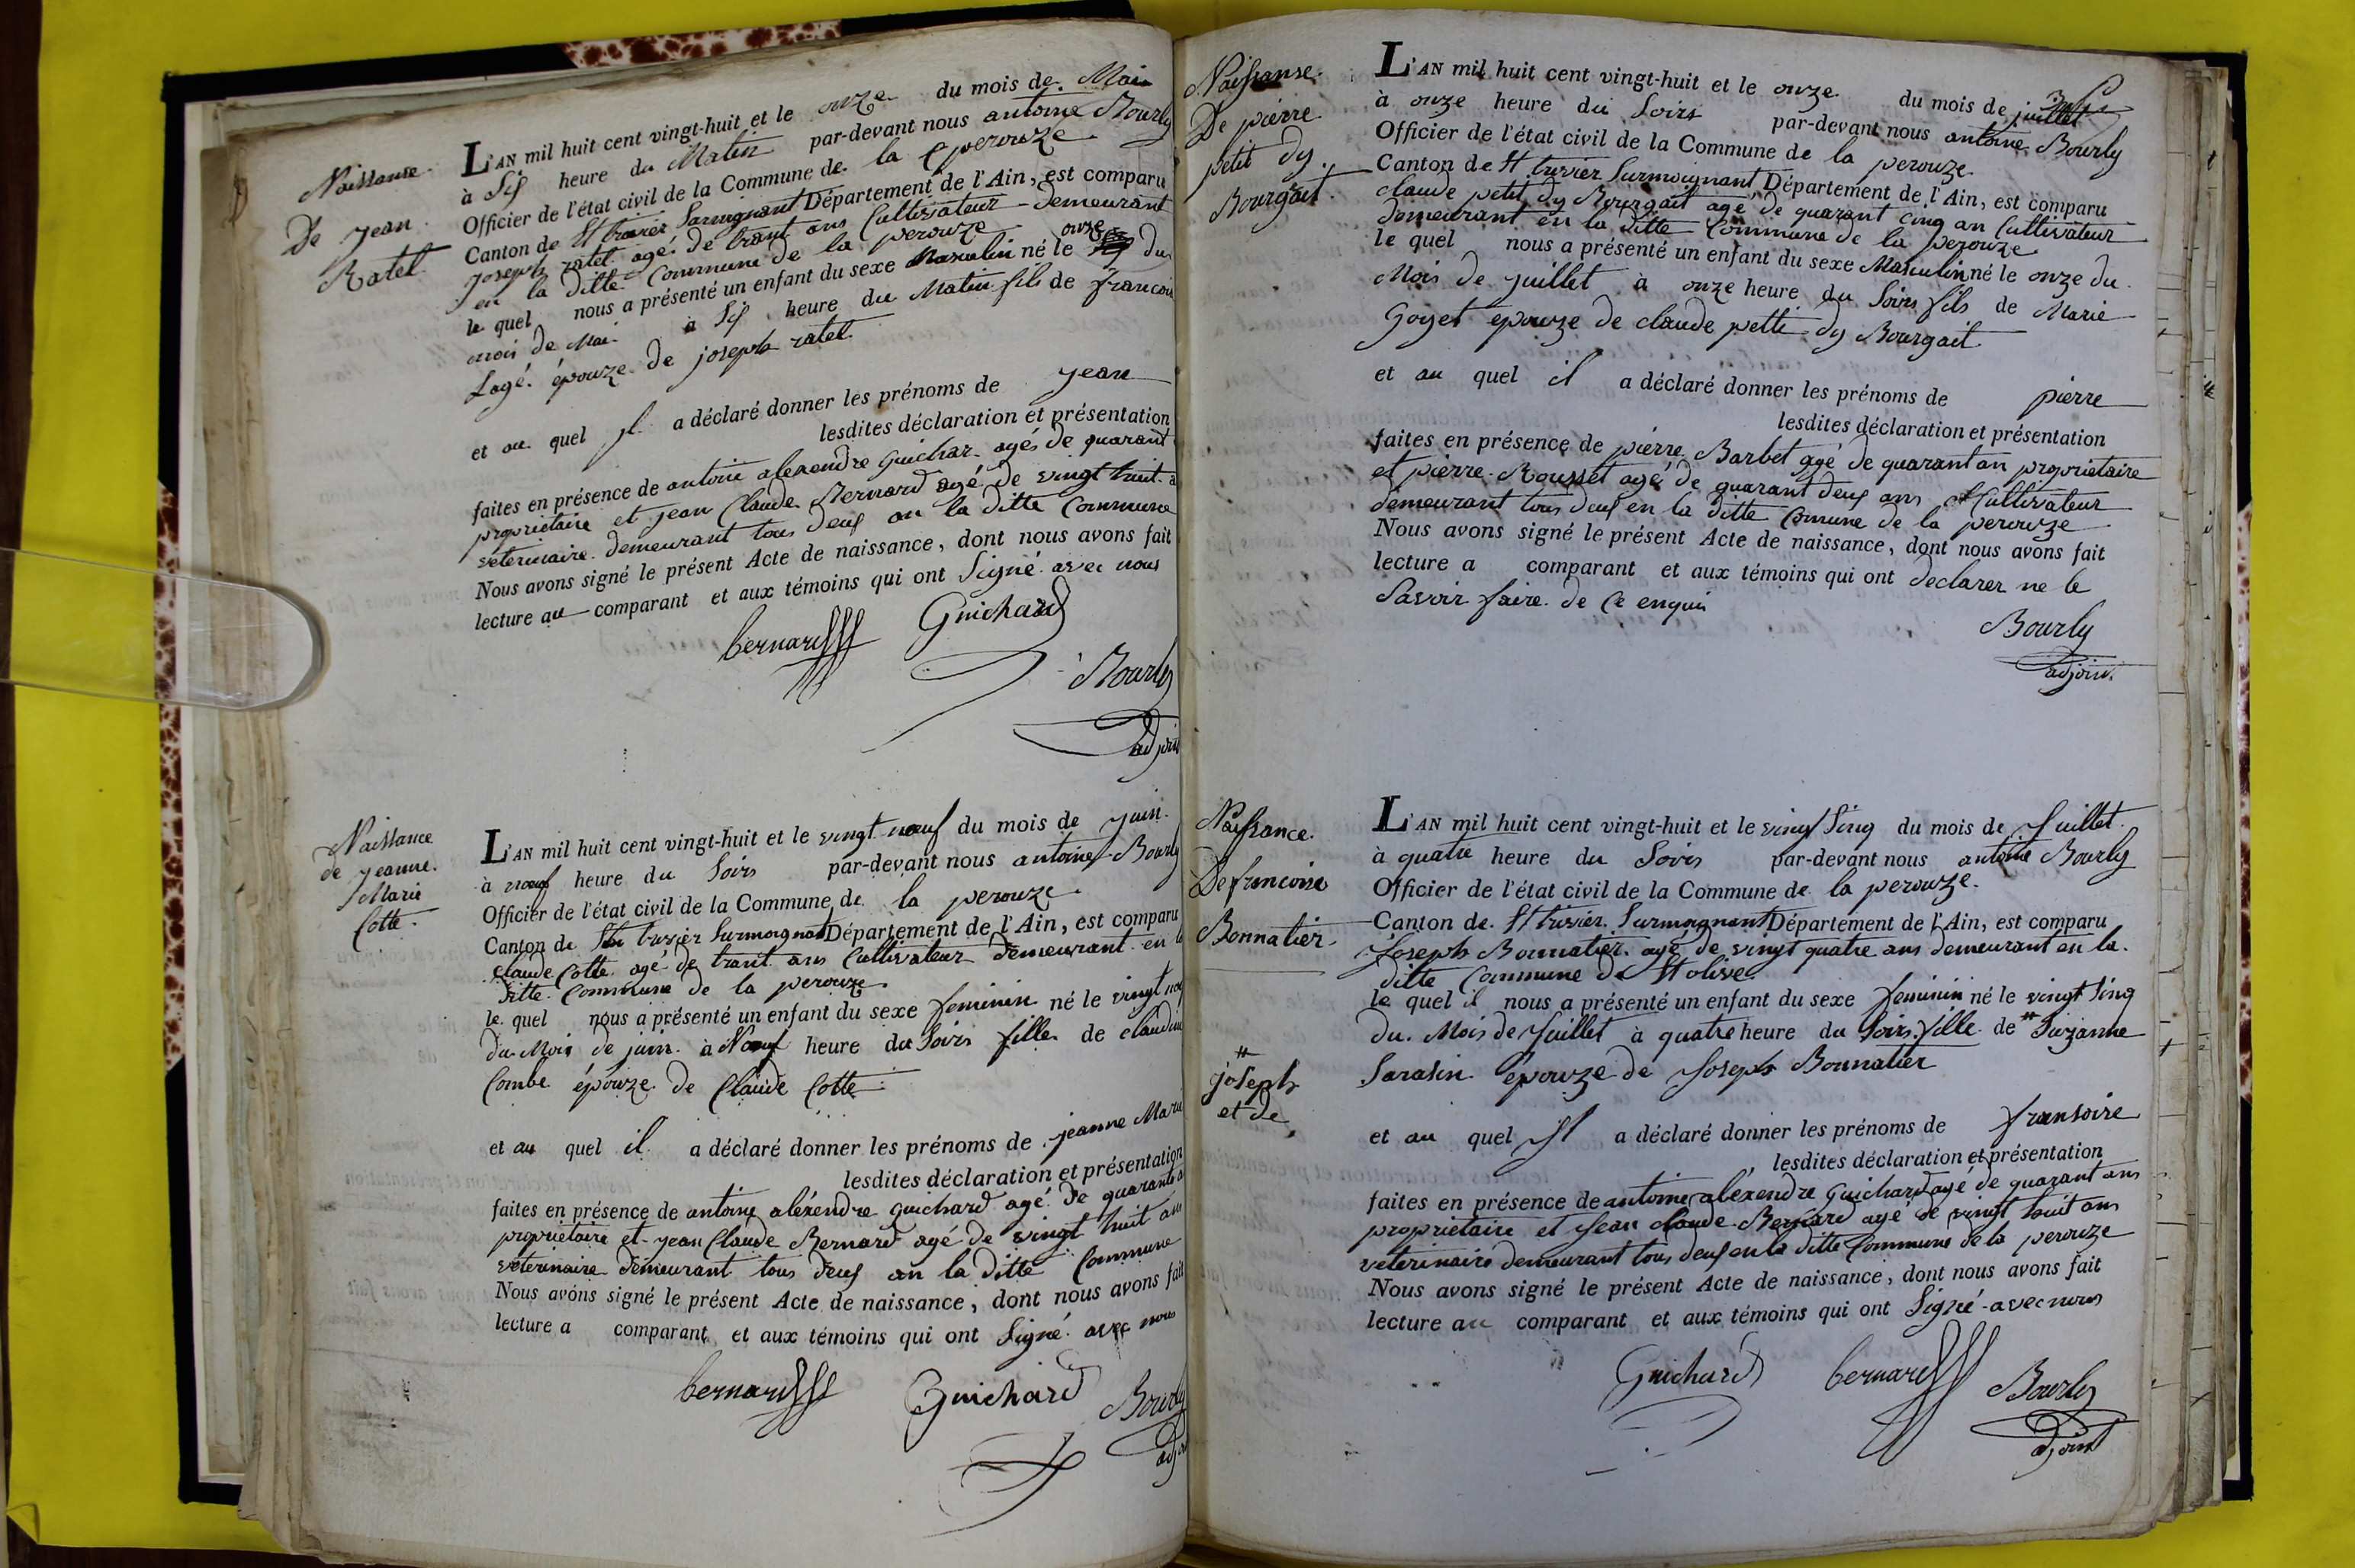 Naissance
De jean
Ratel
L'AN mil huit cent vingt-huit et le onze du mois de Mai
à Sis heure du Matin par-devant nous antoine Bourly
Officier de l'état civil de la Commune de la perouze
Canton de St trivier Surmoignant Département de l'Ain, est comparu
joseph ratel agé de trant ans Cultivateur demeurant
en la ditte Commune de la perouze
le quel nous a présenté un enfant du sexe Masculin né le onze du
mois de Mai à Sis heure du Matin fils de francois
Lagé épouze de joseph ratel
et au quel il a déclaré donner les prénoms de jean
lesdites déclaration et présentation
faites en présence de antoine alexendre Guichar agés de quarant
proprietaire et jean Claude Bernard agé de vingt huit a
veterinaire demeurant tous deus en la ditte Commune
Nous avons signé le présent Acte de naissance, dont nous avons fait
lecture au comparant et aux témoins qui ont Signé avec nous
bernard Guichard
Bourly
adjoint
Naissance
de jeanne
Marie
Cotte
L'AN mil huit cent vingt-huit et le vingt nœuf du mois de juin
à nœuf heure du Soirs par-devant nous antoine Bourly
Officier de l'état civil de la Commune de la perouze
Canton de St trivier Surmoignat Département de l'Ain, est comparu
claude Cotte agé de trant ans Cultivateur demeurant en la
ditte Commune de la perouze
le quel nous a présenté un enfant du sexe feminin né le vingt nœ
du Mois de juin à Nœuf heure du Soirs fille de claudine
Combe épouze de Claude Cotte
et au quel il a déclaré donner les prénoms de jeanne Marie
lesdites déclaration et présentation
faites en présence de antoine aléxendre guichard agé de quarante a
proprietaire et jean Claude Bernard agé de vingt huit ans
veterinaire demeurant tous deus en la ditte Commune
Nous avons signé le présent Acte de naissance, dont nous avons fait
lecture a comparant et aux témoins qui ont Signé avec nous
bernard Guichard Bourly
adj
Naissanse
De pierre
petit dy
Bourgait
L'AN mil huit cent vingt-huit et le onze du mois de juillet
à onze heure du Soirs par-devant nous antoine Bourly
Officier de l'état civil de la Commune de la perouze
Canton de St trivier Surmoignant Département de l'Ain, est comparu
claude petit dy Bourgait agé de quarant cinq an Cultivateur
demeurant en la ditte Commune de la perouze
le quel nous a présenté un enfant du sexe Masculin né le onze du
Mois de juillet à onze heure du Soirs fils de Marie
Goyet epouze de claude petti dy Bourgait
et au quel il a déclaré donner les prénoms de pierre
lesdites déclaration et présentation
faites en présence de pierre Barbet agé de quarant an proprietaire
et pierre Rousset agé de quarant deus ans Cultivateur
demeurant tous deus en la ditte Comune de la perouze
Nous avons signé le présent Acte de naissance, dont nous avons fait
lecture a comparant et aux témoins qui ont declarer ne le
Savoir faire de Ce enquis
Bourly
adjoint
Naissance
De francoise
Bonnatier
L'AN mil huit cent vingt-huit et le vingt Sinq du mois de Juillet
à quatre heure du Soirs par-devant nous antoine Bourly
Officier de l'état civil de la Commune de la perouze
Canton de St trivier Surmoignant Département de l'Ain, est comparu
Joseph Bonnatier agé de vingt quatre ans demeurant en la
ditte Commune de St olive
le quel il nous a présenté un enfant du sexe feminin né le vingt Sinq
du Mois de Juillet à quatre heure du Soirs fille de # Suzanne
Sarasin épouze de Joseph Bonnatier
#
joseph
et de
et au quel Il a déclaré donner les prénoms de fransoire
lesdites déclaration et présentation
faites en présence de antoine aléxendre guichard agé de quarant ans
proprietaire et Jean claude Bernard agé de vingt huit ans
veterinaire demeurant tous deus en la ditte Commune de la perouze
Nous avons signé le présent Acte de naissance, dont nous avons fait
lecture au comparant et aux témoins qui ont Signé avec nous
Guichard bernard Bourly
adjoint